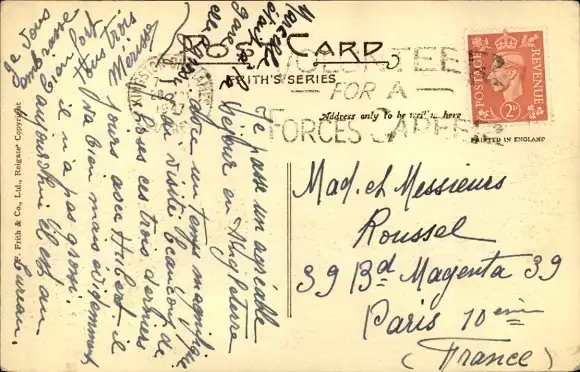 POST CARD
FRITH'S SERIES
VOLUNTEER
FOR A
FORCES CAREER
Address only to be written here
POSTAGE
REVENUE
2D
PRINTED IN ENGLAND
F. Frith & Co., Ltd., Reigate Copyright
Je passe un agréable
séjour en Angleterre
un temps magnifique
visité beaucoup de
choses ces trois derniers
jours avec Hubert il
va bien mais évidemment
il n'a pas grossi.
aujourd'hui il est au
bureau.
Je vous
embrasse
bien fort
tous trois
Mad. et Messieurs
Roussel
39 Bd Magenta 39
Paris 10ème
(France)